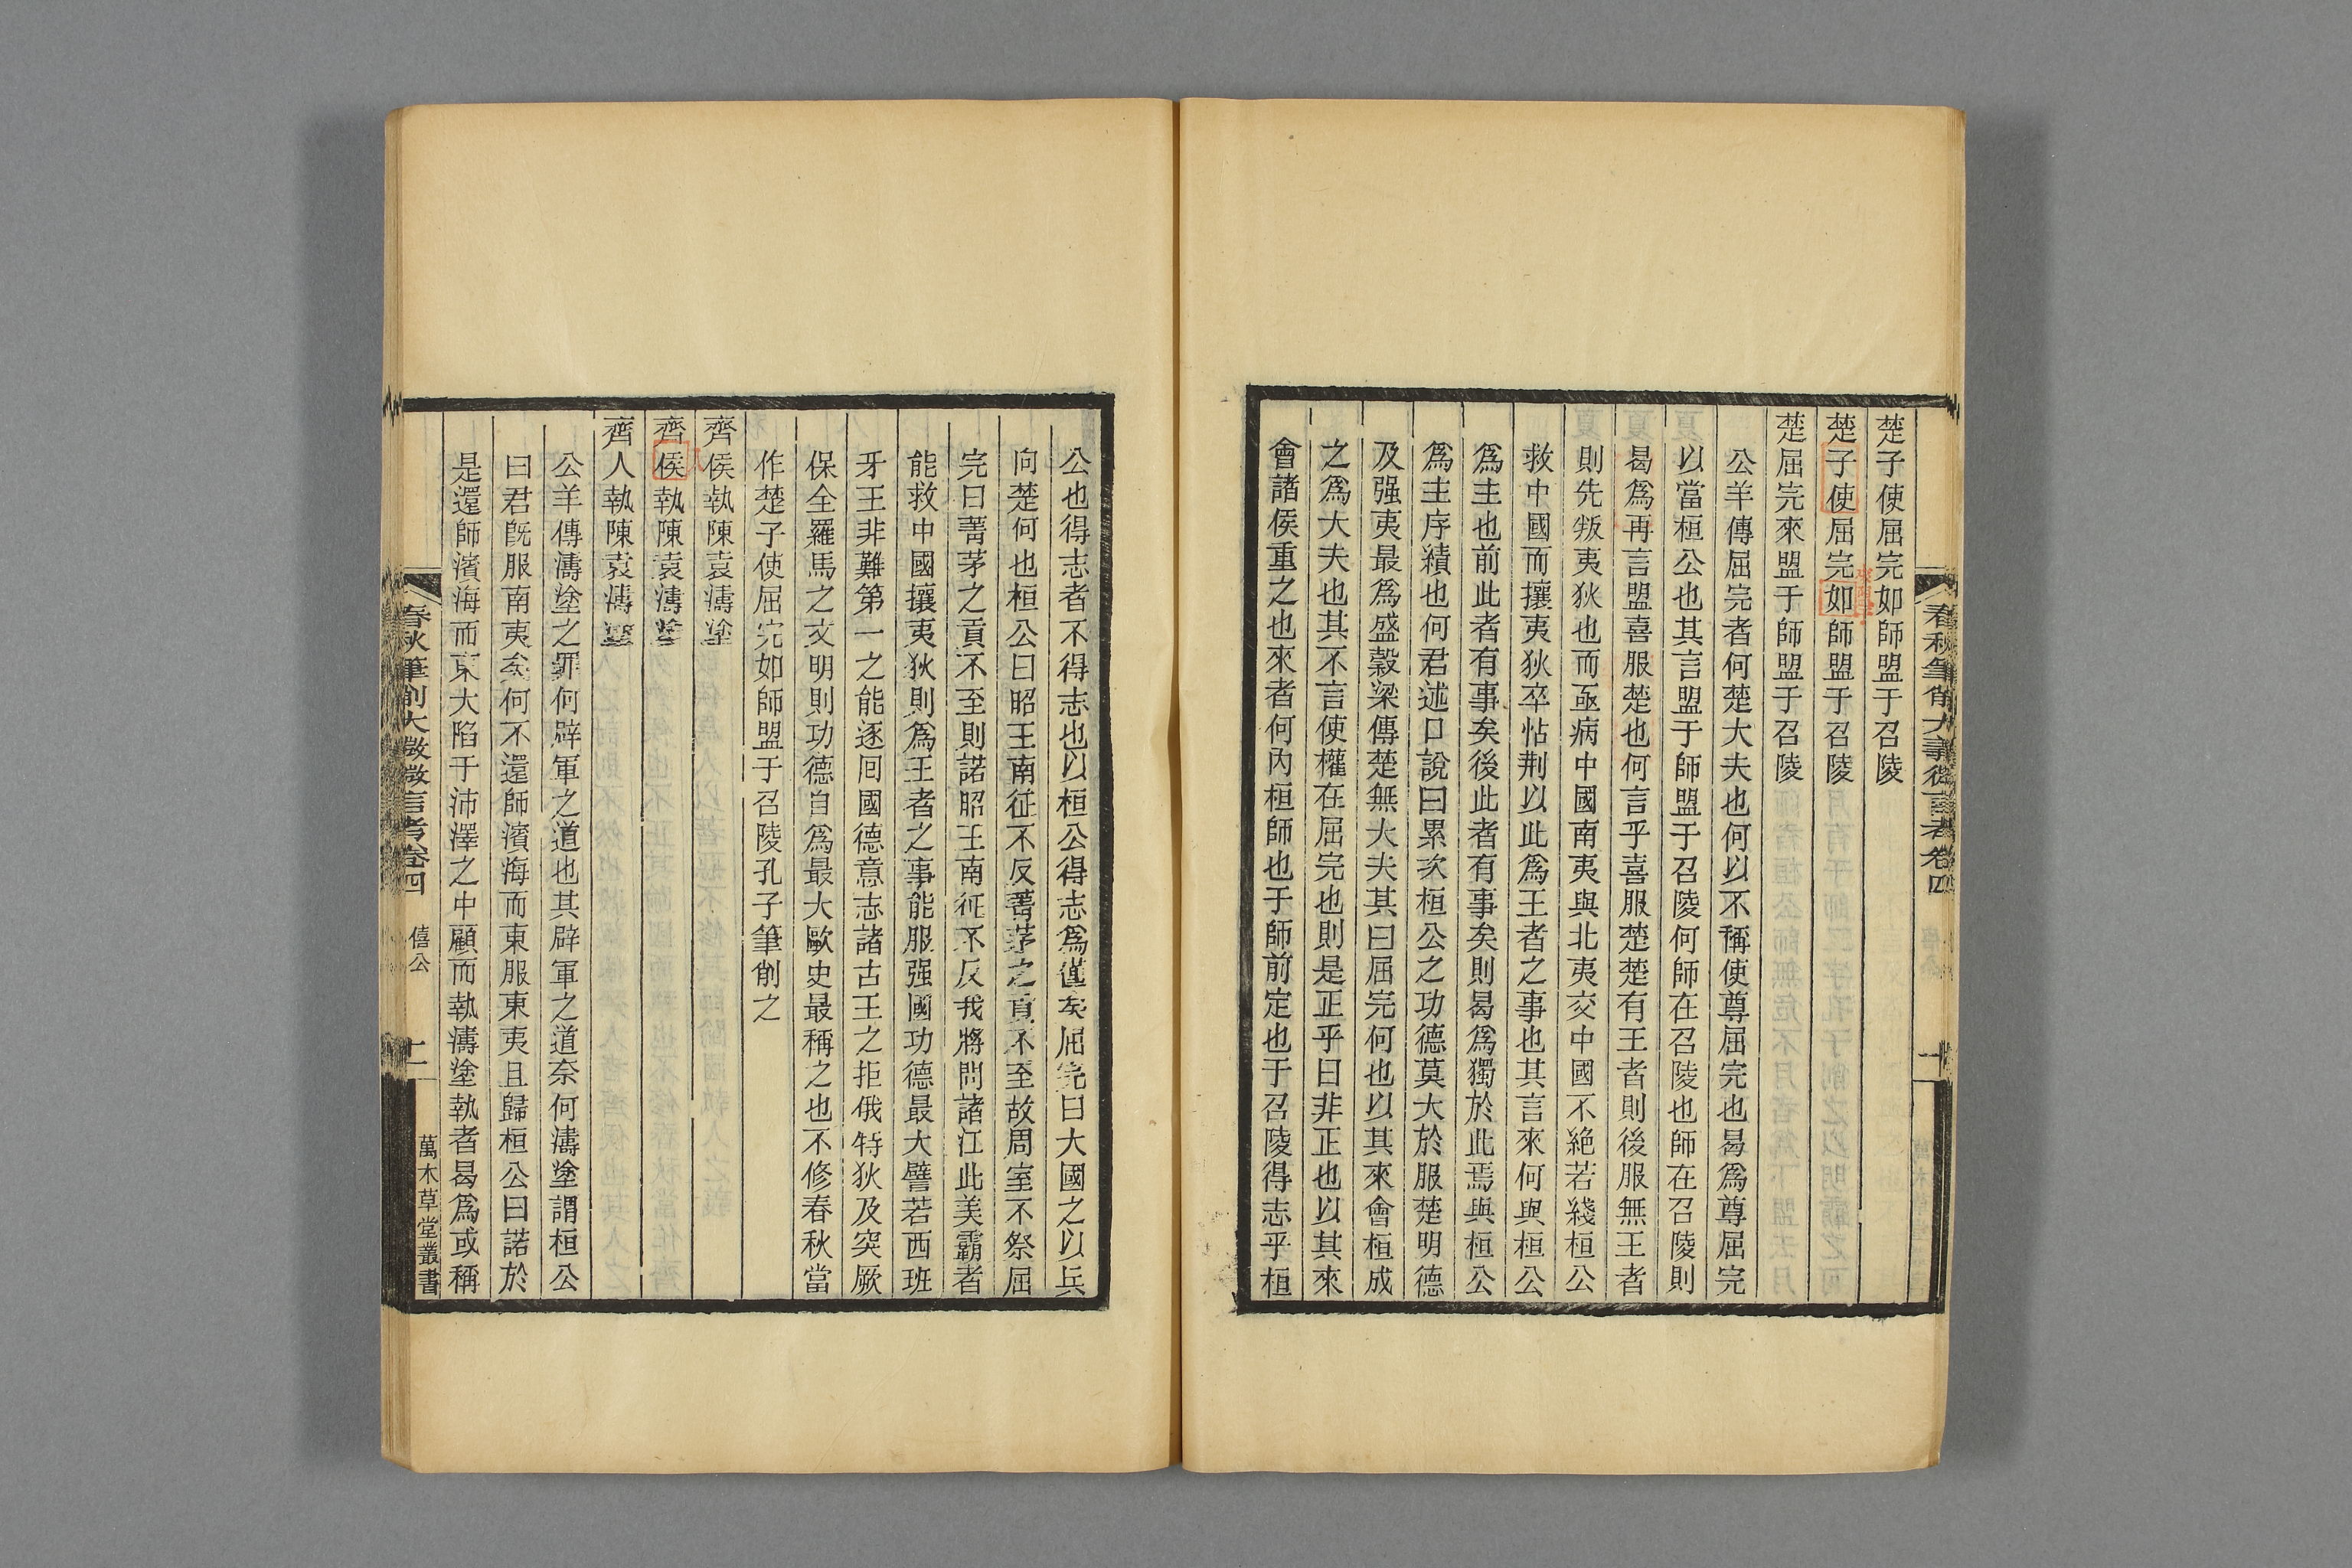 楚子使屈完如師盟于召陵
楚子使屈完如師盟于召陵
楚屈完來盟于師盟于召陵
公羊傳屈完者何楚大夫也何以不稱使尊屈完也曷爲尊屈完
以當桓公也其言盟于師盟于召陵何師在召陵也師在召陵則
曷爲再言盟喜服楚也何言乎喜服楚楚有王者則後服無王者
則先叛夷狄也而亟病中國南夷與北夷交中國不絶若綫桓公
救中國而攘夷狄卒怗荆以此爲王者之事也其言來何與桓公
爲主也前此者有事矣後此者有事矣則曷爲獨於此焉與桓公
爲主序績也何君述口說曰累次桓公之功德莫大於服楚明德
及强夷最爲盛穀梁傳楚無大夫其曰屈完何也以其來會桓成
之爲大夫也其不言使權在屈完也則是正乎曰非正也以其來
會諸侯重之也來者何內桓師也于師前定也于召陵得志乎桓
公也得志者不得志也以桓公得志爲僅矣屈完曰大國之以兵
向楚何也桓公曰昭王南征不反菁茅之貢不至故周室不祭屈
完曰菁茅之貢不至則諾昭王南征不反我將問諸江此美霸者
能救中國攘夷狄則爲王者之事能服强國功德最大譬若西班
牙王非難第一之能逐回國德意志諸古王之拒俄特狄及突厥
保全羅馬之文明則功德自爲最大歐史最稱之也不修春秋當
作楚子使屈完如師盟于召陵孔子筆削之
齊侯執陳袁濤塗
齊侯執陳袁濤塗
齊人執陳袁濤塗
公羊傳濤塗之罪何辟軍之道也其辟軍之道奈何濤塗謂桓公
曰君旣服南夷矣何不還師濱海而東服東夷且歸桓公曰諾於
是還師濱海而東大陷于沛澤之中顧而執濤塗執者曷爲或稱
春秋筆削大義微言考卷四 僖公 二 萬木草堂叢書